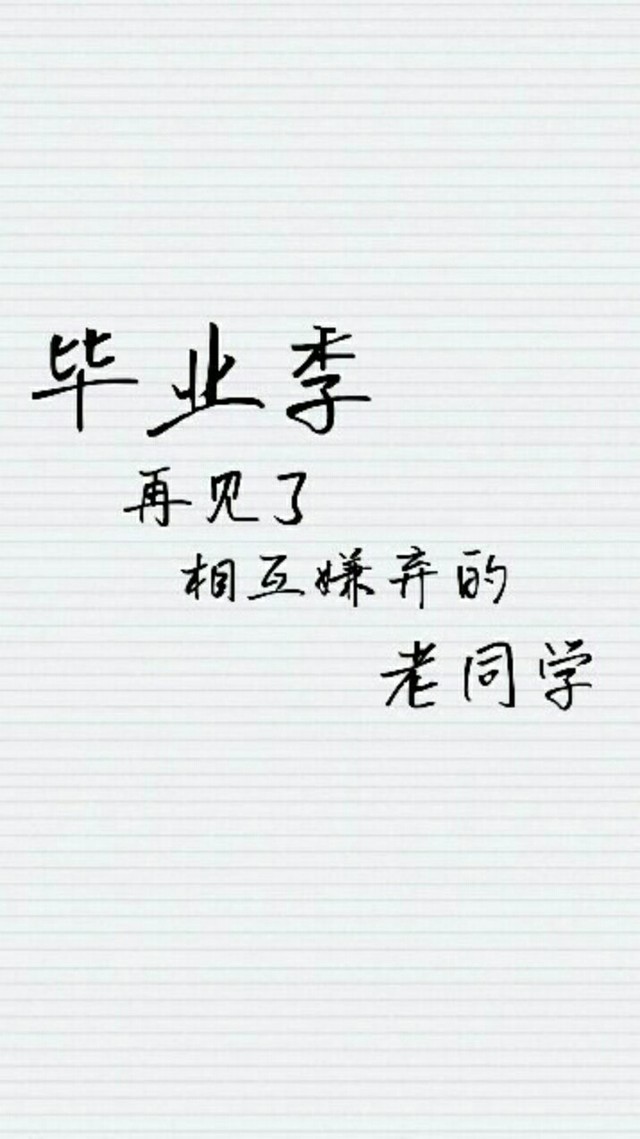 毕业季
再见了
相互嫌弃的
老同学